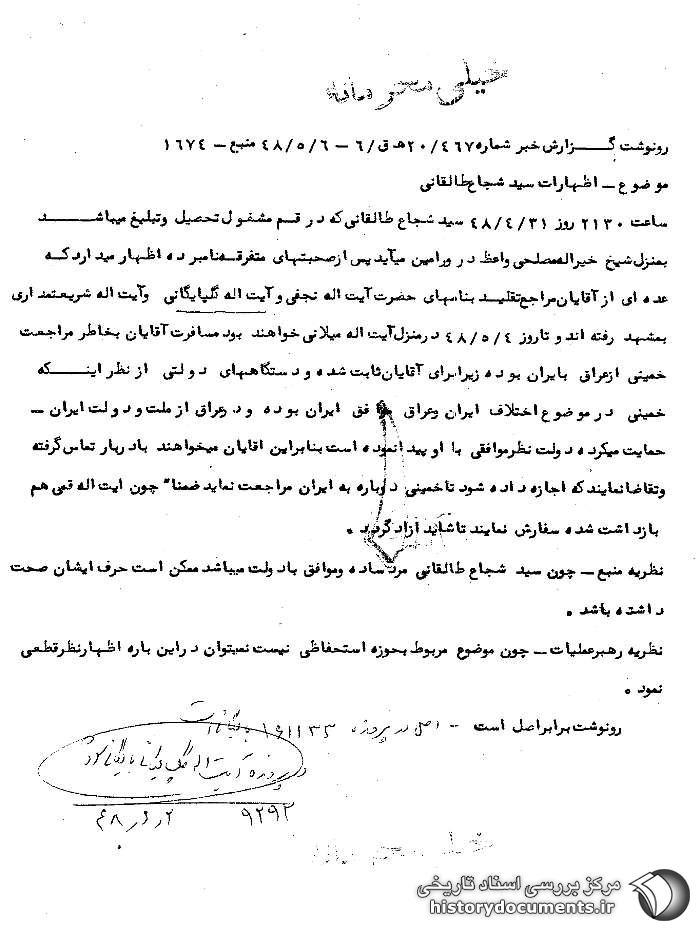 خیلی محرمانه
رونوشت گـــزارش خبر شماره ۲۰/۴۶۷ هـ ق/۶ – ۴۸/۵/۶ منبع – ۱۶۷۴
موضوع – اظهارات سید شجاع طالقانی
ساعت ۲۱۳۰ روز ۴۸/۴/۳۱ سید شجاع طالقانی که در قم مشغول تحصیل وتبلیغ میباشـــد
بمنزل شیخ خیراله مصلحی واعظ در ورامین میآید پس از صحبتهای متفرقه نامبرده اظهار میدارد کـه
عده ای از آقایان مراجع تقلیـد بنامهای حضرت آیت اله نجفی و آیت اله گلپایگانی وآیت اله شریعتمداری
بمشهد رفته اند و تا روز ۴۸/۵/۴ در منزل آیت اله میلانی خواهند بود مسافرت آقایان بخاطر مراجعت
خمینی از عراق بایران بوده زیرا برای آقایان ثابت شده و دستگاههای دولتی از نظر اینـــکه
خمینی در موضوع اختلاف ایران وعراق موافق ایران بوده و در عراق از ملت و دولت ایران –
حمایت میکرده دولت نظر موافقی با او پیدا نموده است بنابراین اقایان میخواهند با دربار تماس گرفته
وتقاضا نمایند که اجازه داده شود تا خمینی دوباره به ایران مراجعت نماید ضمنا" چون ایت اله قمی هم
بازداشت شده سفارش نمایند تا شاید آزاد گردد .
نظریه منبع – چون سید شجاع طالقانی مرد ساده وموافق با دولت میباشد ممکن است حرف ایشان صحت
داشته باشد .
نظریه رهبر عملیات – چون موضوع مربوط بحوزه استحفاظی نیست نمیتوان در این باره اظهار نظر قطعی
نمود .
رونوشت برابر اصل است – اصل در پرونده ۱۶۱۱۳۲ بایگانی است
در پرونده آیت اله گلپایگانی بایگانی شود
۹۲۹۲ ۴۸/۶/۲
خیلی محرمانه
مرکز بررسی اسناد تاریخی
historydocuments.ir